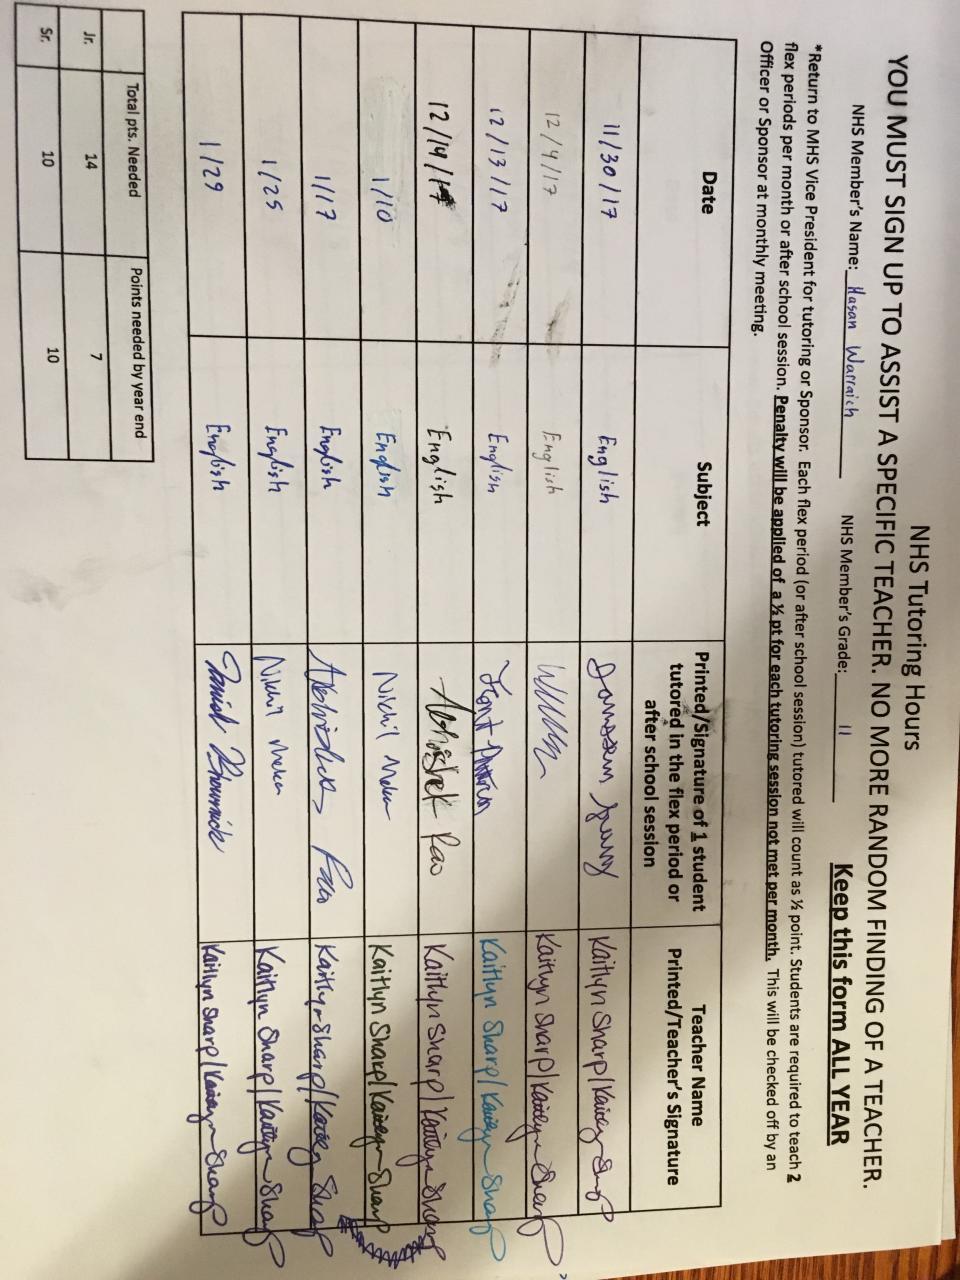 NHS Tutoring Hours
YOU MUST SIGN UP TO ASSIST A SPECIFIC TEACHER. NO MORE RANDOM FINDING OF A TEACHER.
NHS Member's Name: Hasan Warraich NHS Member's Grade: 11 Keep this form ALL YEAR
*Return to MHS Vice President for tutoring or Sponsor. Each flex period (or after school session) tutored will count as ½ point. Students are required to teach 2
flex periods per month or after school session. Penalty will be applied of a ½ pt for each tutoring session not met per month. This will be checked off by an
Officer or Sponsor at monthly meeting.
Date Subject Printed/Signature of 1 student tutored in the flex period or after school session Teacher Name Printed/Teacher's Signature
11/30/17 English Kaitlyn Sharp/Kaitlyn Sharp
12/9/17 English Kaitlyn Sharp/Kaitlyn Sharp
12/13/17 English Kaitlyn Sharp/Kaitlyn Sharp
12/19/17 English Abhishek Rao Kaitlyn Sharp/Kaitlyn Sharp
1/10 English Nikhil Kaitlyn Sharp/Kaitlyn Sharp
1/17 English Abhishek Rao Kaitlyn Sharp/Kaitlyn Sharp
1/25 English Nikhil Kaitlyn Sharp/Kaitlyn Sharp
1/29 English Kaitlyn Sharp/Kaitlyn Sharp
Total pts. Needed Points needed by year end
Jr. 14 7
Sr. 10 10